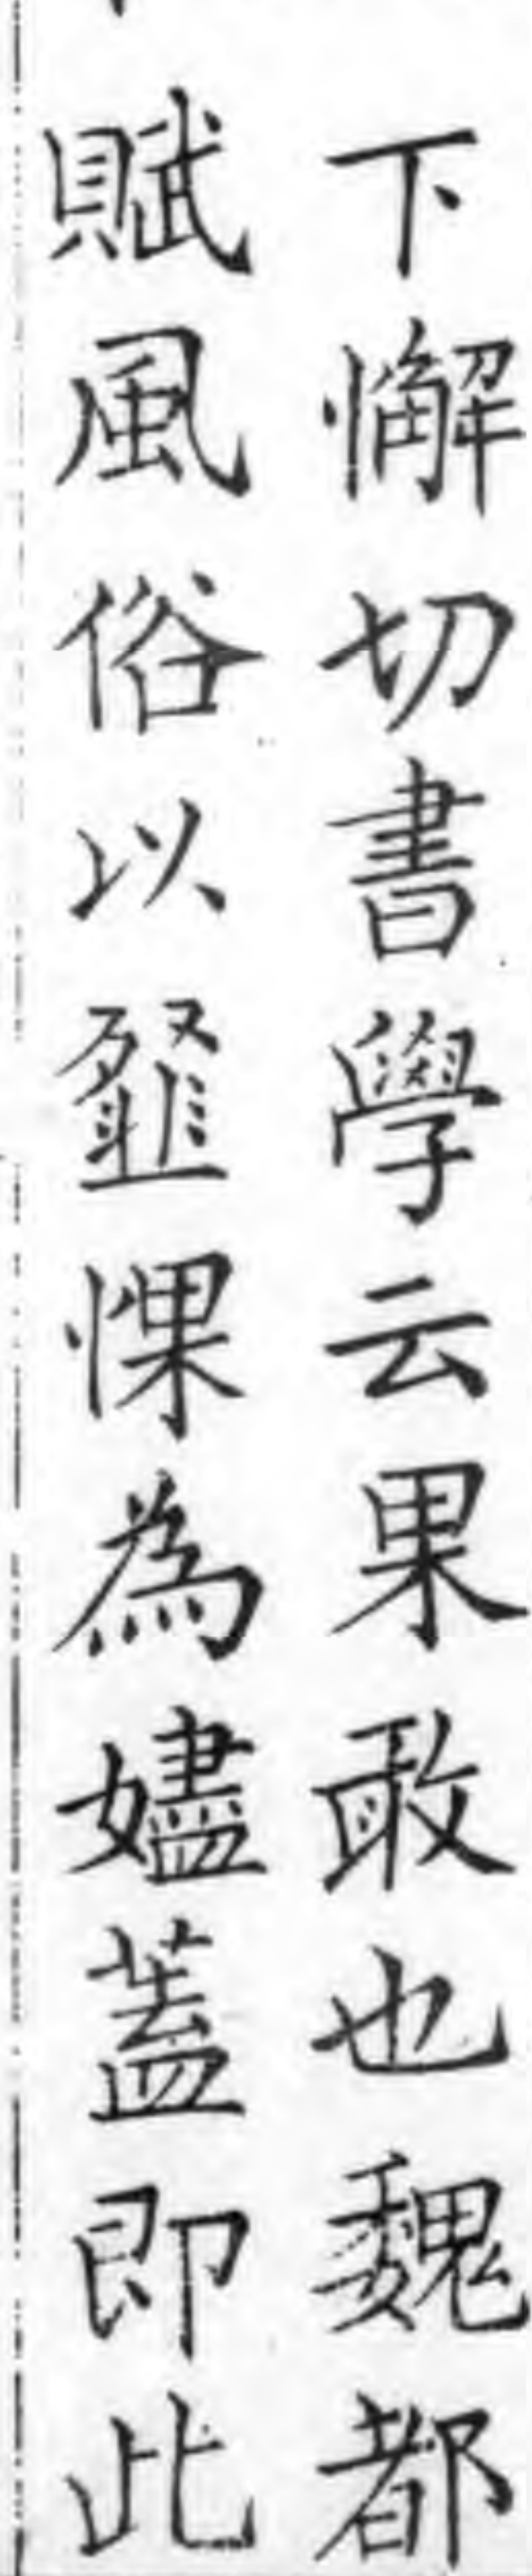 下懈切書學云果敢也魏都
賦風俗以韰惈為嫿蓋即此